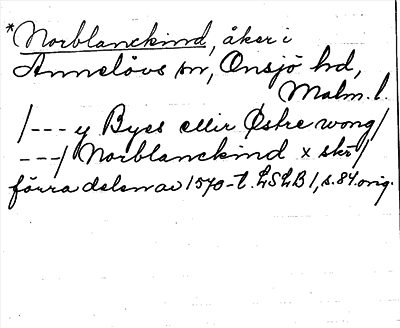 *Norblanckind, åker i
Annelövs sn, Onsjö hd,
Malm. l.
/--- y Byes ellir Østre wong/
---/ Norblanckind x skr/
förra delen av 1570-t. LSLB 1, s. 84. orig.